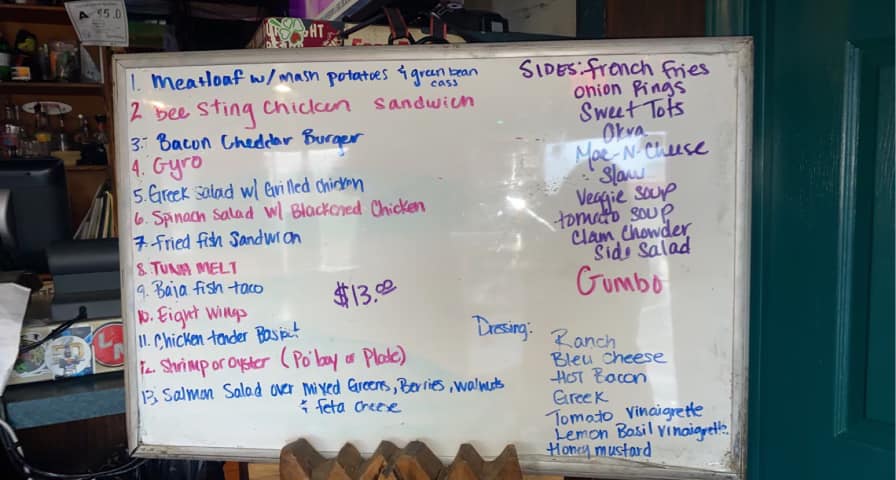 1. Meatloaf w/ mash potatoes & green bean
cass
2 bee Sting Chicken Sandwich
3. Bacon Cheddar Burger
4. Gyro
5. Greek salad w/ Grilled chicken
6. Spinach Salad w/ Blackened Chicken
7. Fried fish Sandwich
8. TUNA MELT
9. Baja fish taco
$13.00
10. Eight Wings
11. Chicken tender Basket
12. Shrimp or oyster (Po'boy or Plate)
13. Salmon Salad over Mixed Greens, Berries, walnuts
& feta cheese
SIDES: French Fries
Onion Rings
Sweet Tots
Okra
Mac-N-Cheese
Slaw
Veggie Soup
tomato soup
Clam Chowder
Side Salad
Gumbo
Dressing:
Ranch
Bleu cheese
HOT Bacon
Greek
Tomato Vinaigrette
Lemon Basil Vinaigrette
Honey mustard